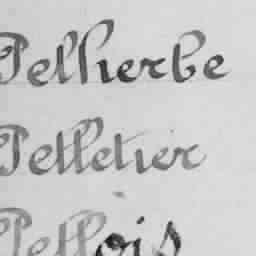 Pelherbe
Pelletier
Pellois